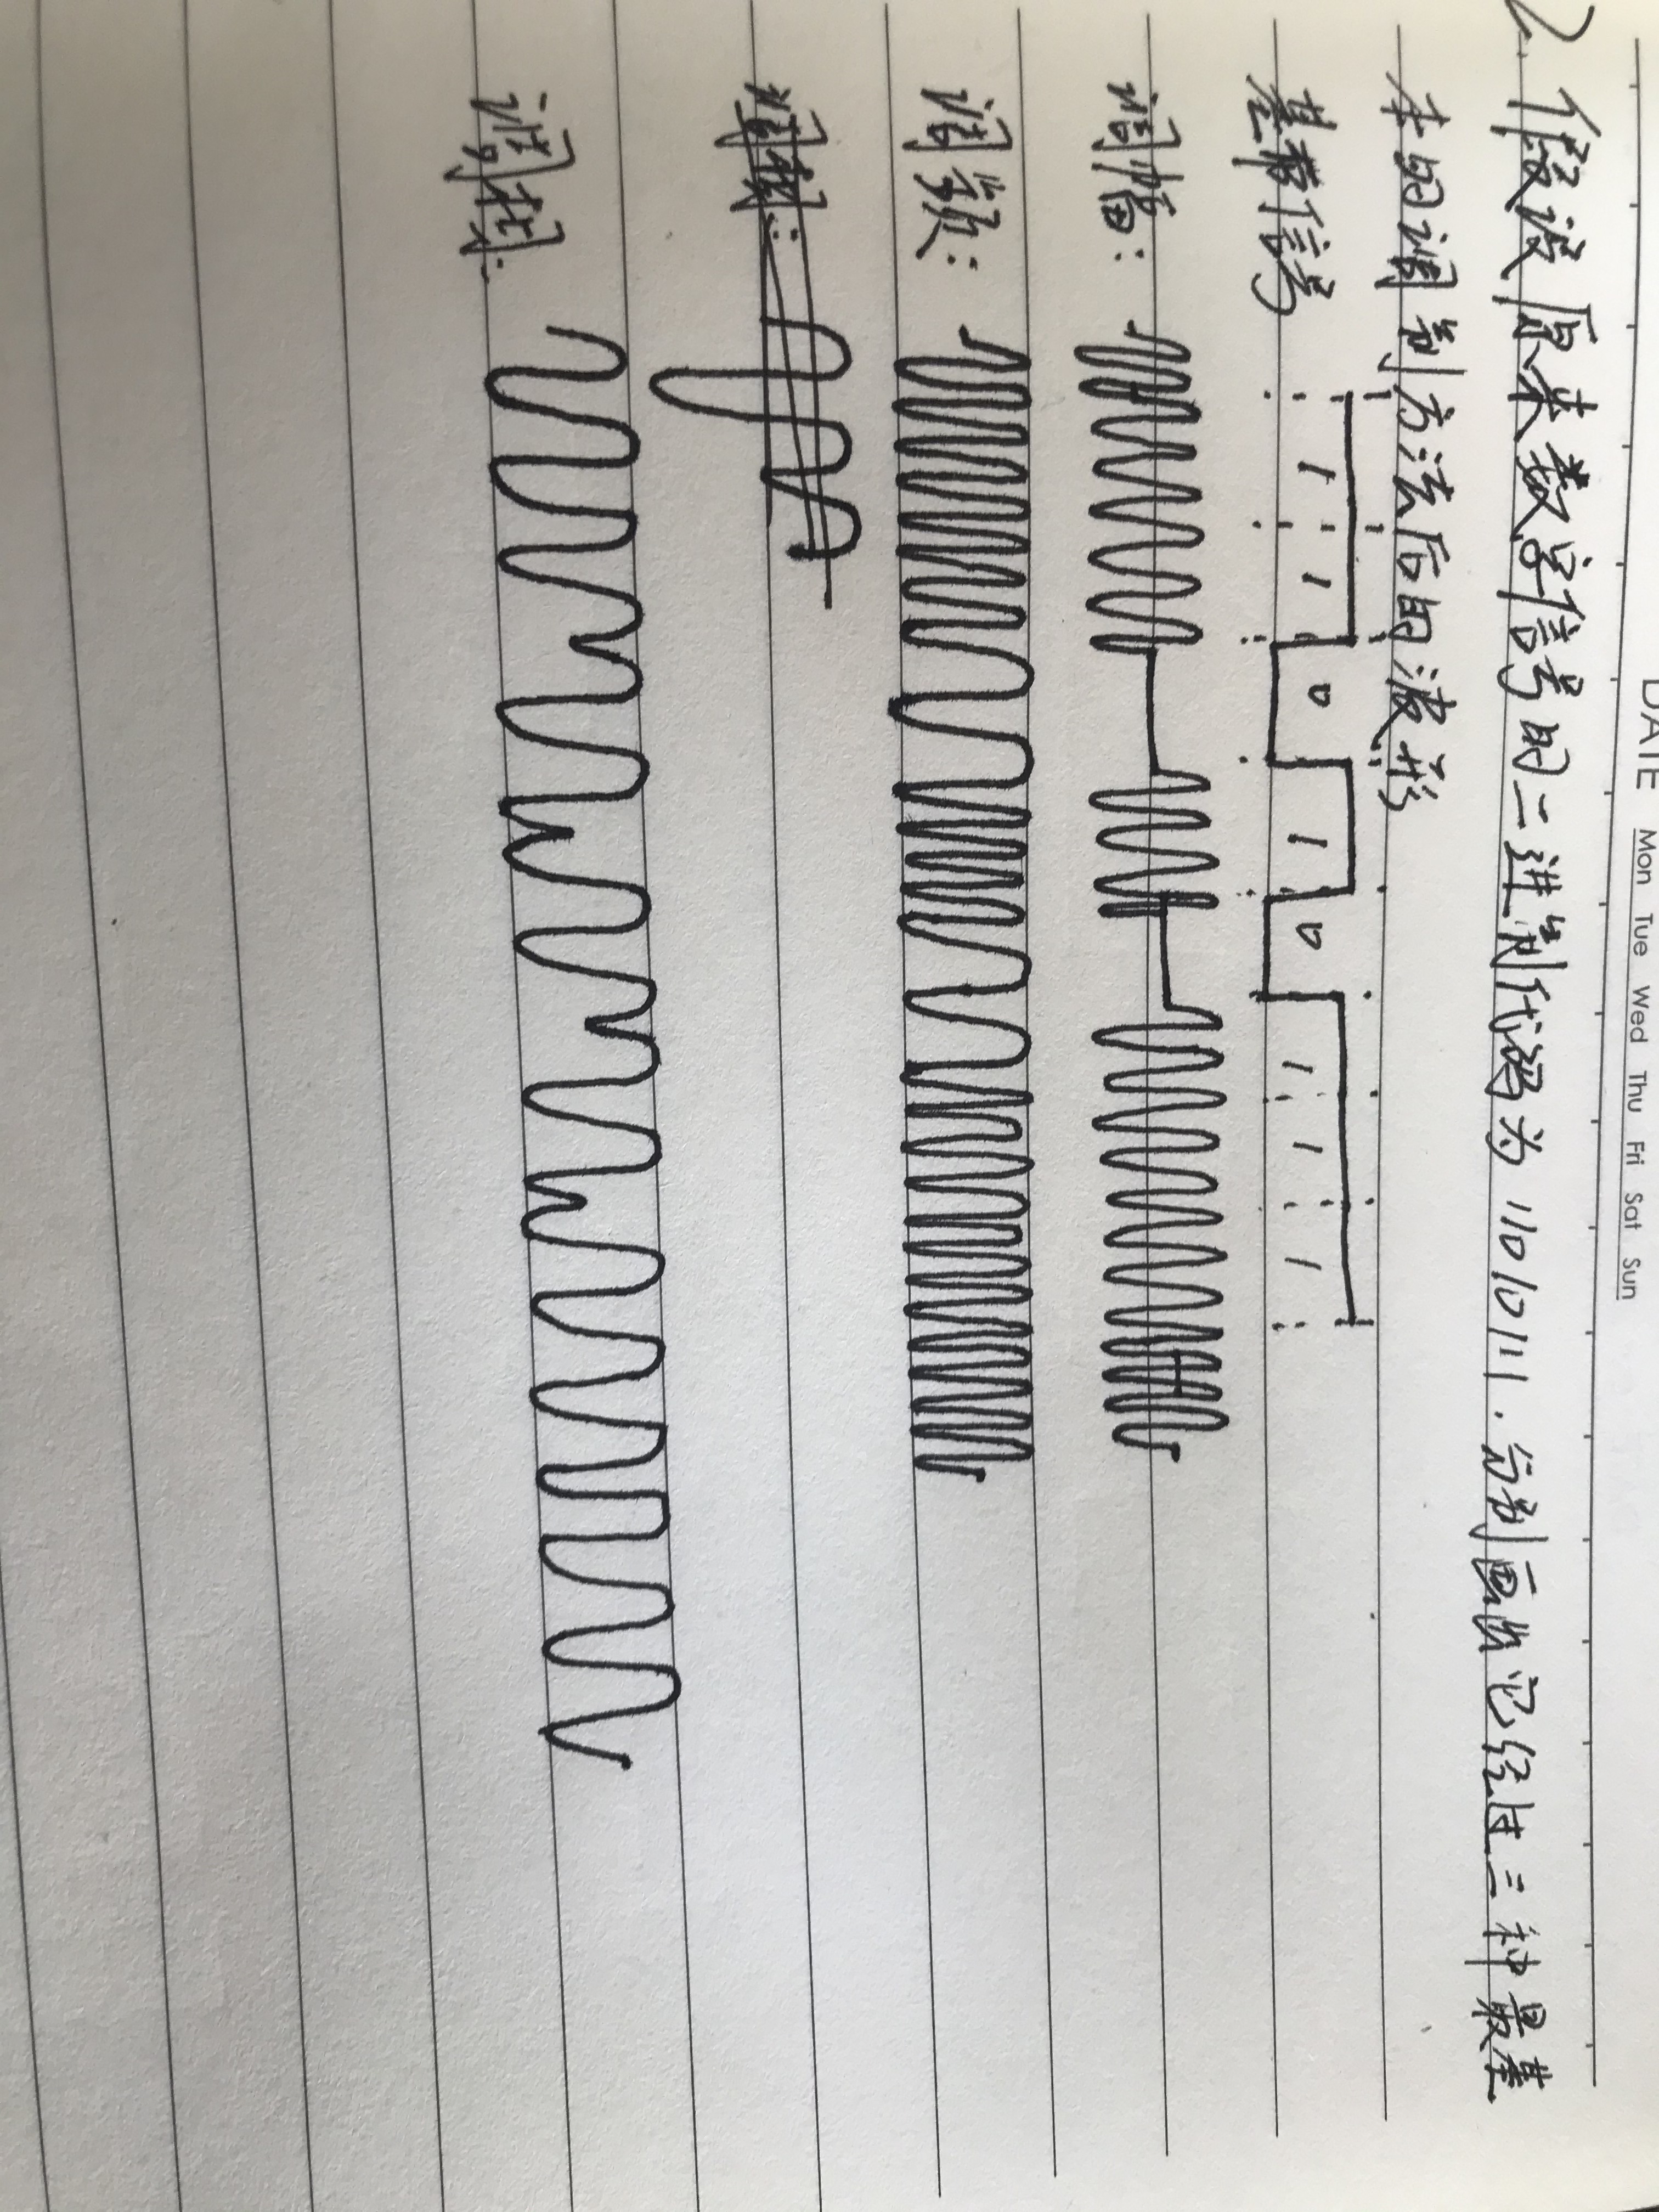 DATE Mon Tue Wed Thu Fri Sat Sun
2. 假设原来数字信号的二进制代码为 11010111. 分别画出它经过三种最基
本的调制方法后的波形
基带信号 1 1 0 1 0 1 1 1
调幅:
调频:
调相: